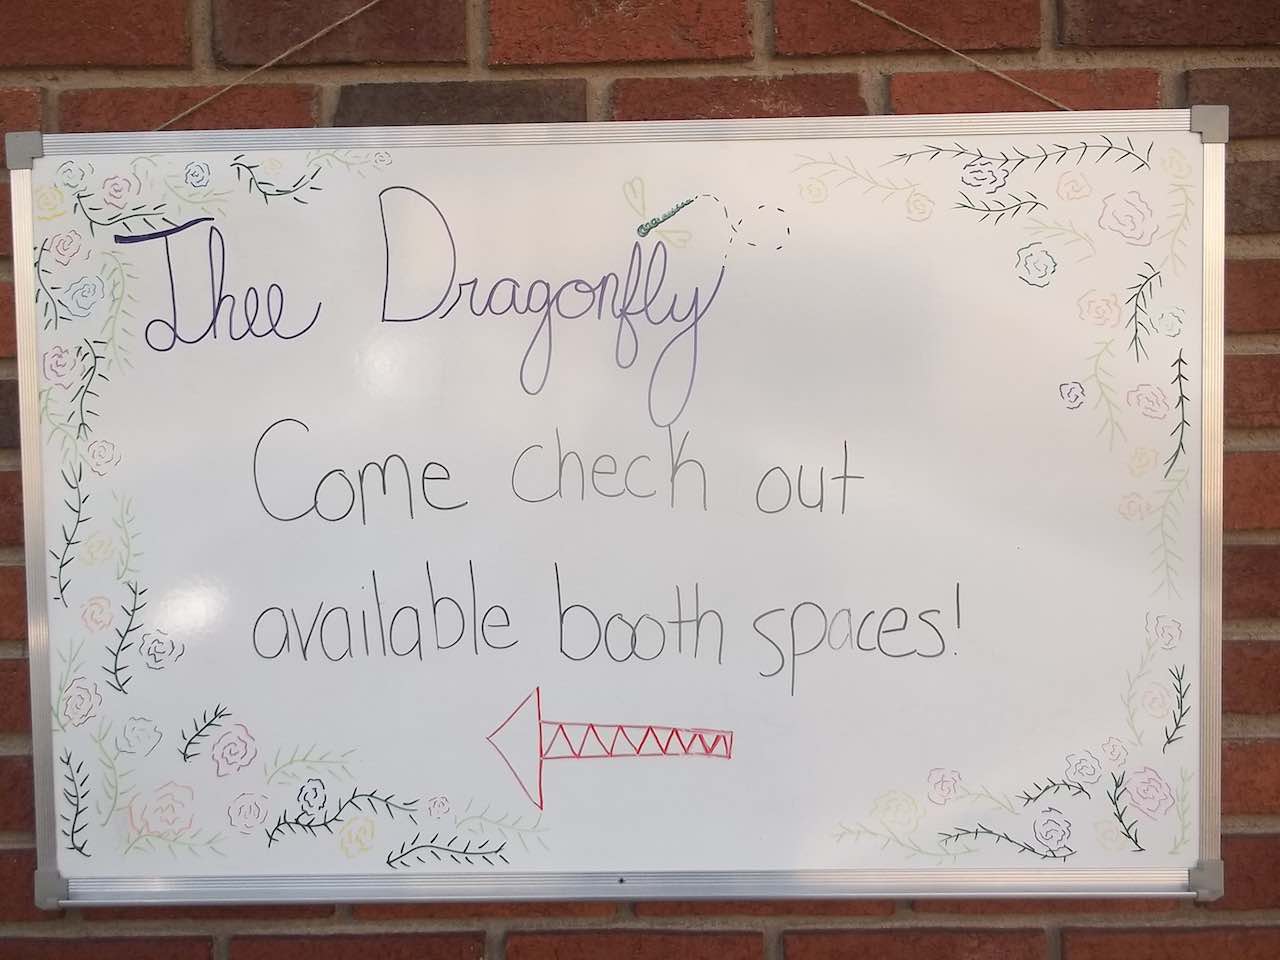 Thee Dragonfly
Come check out
available booth spaces!